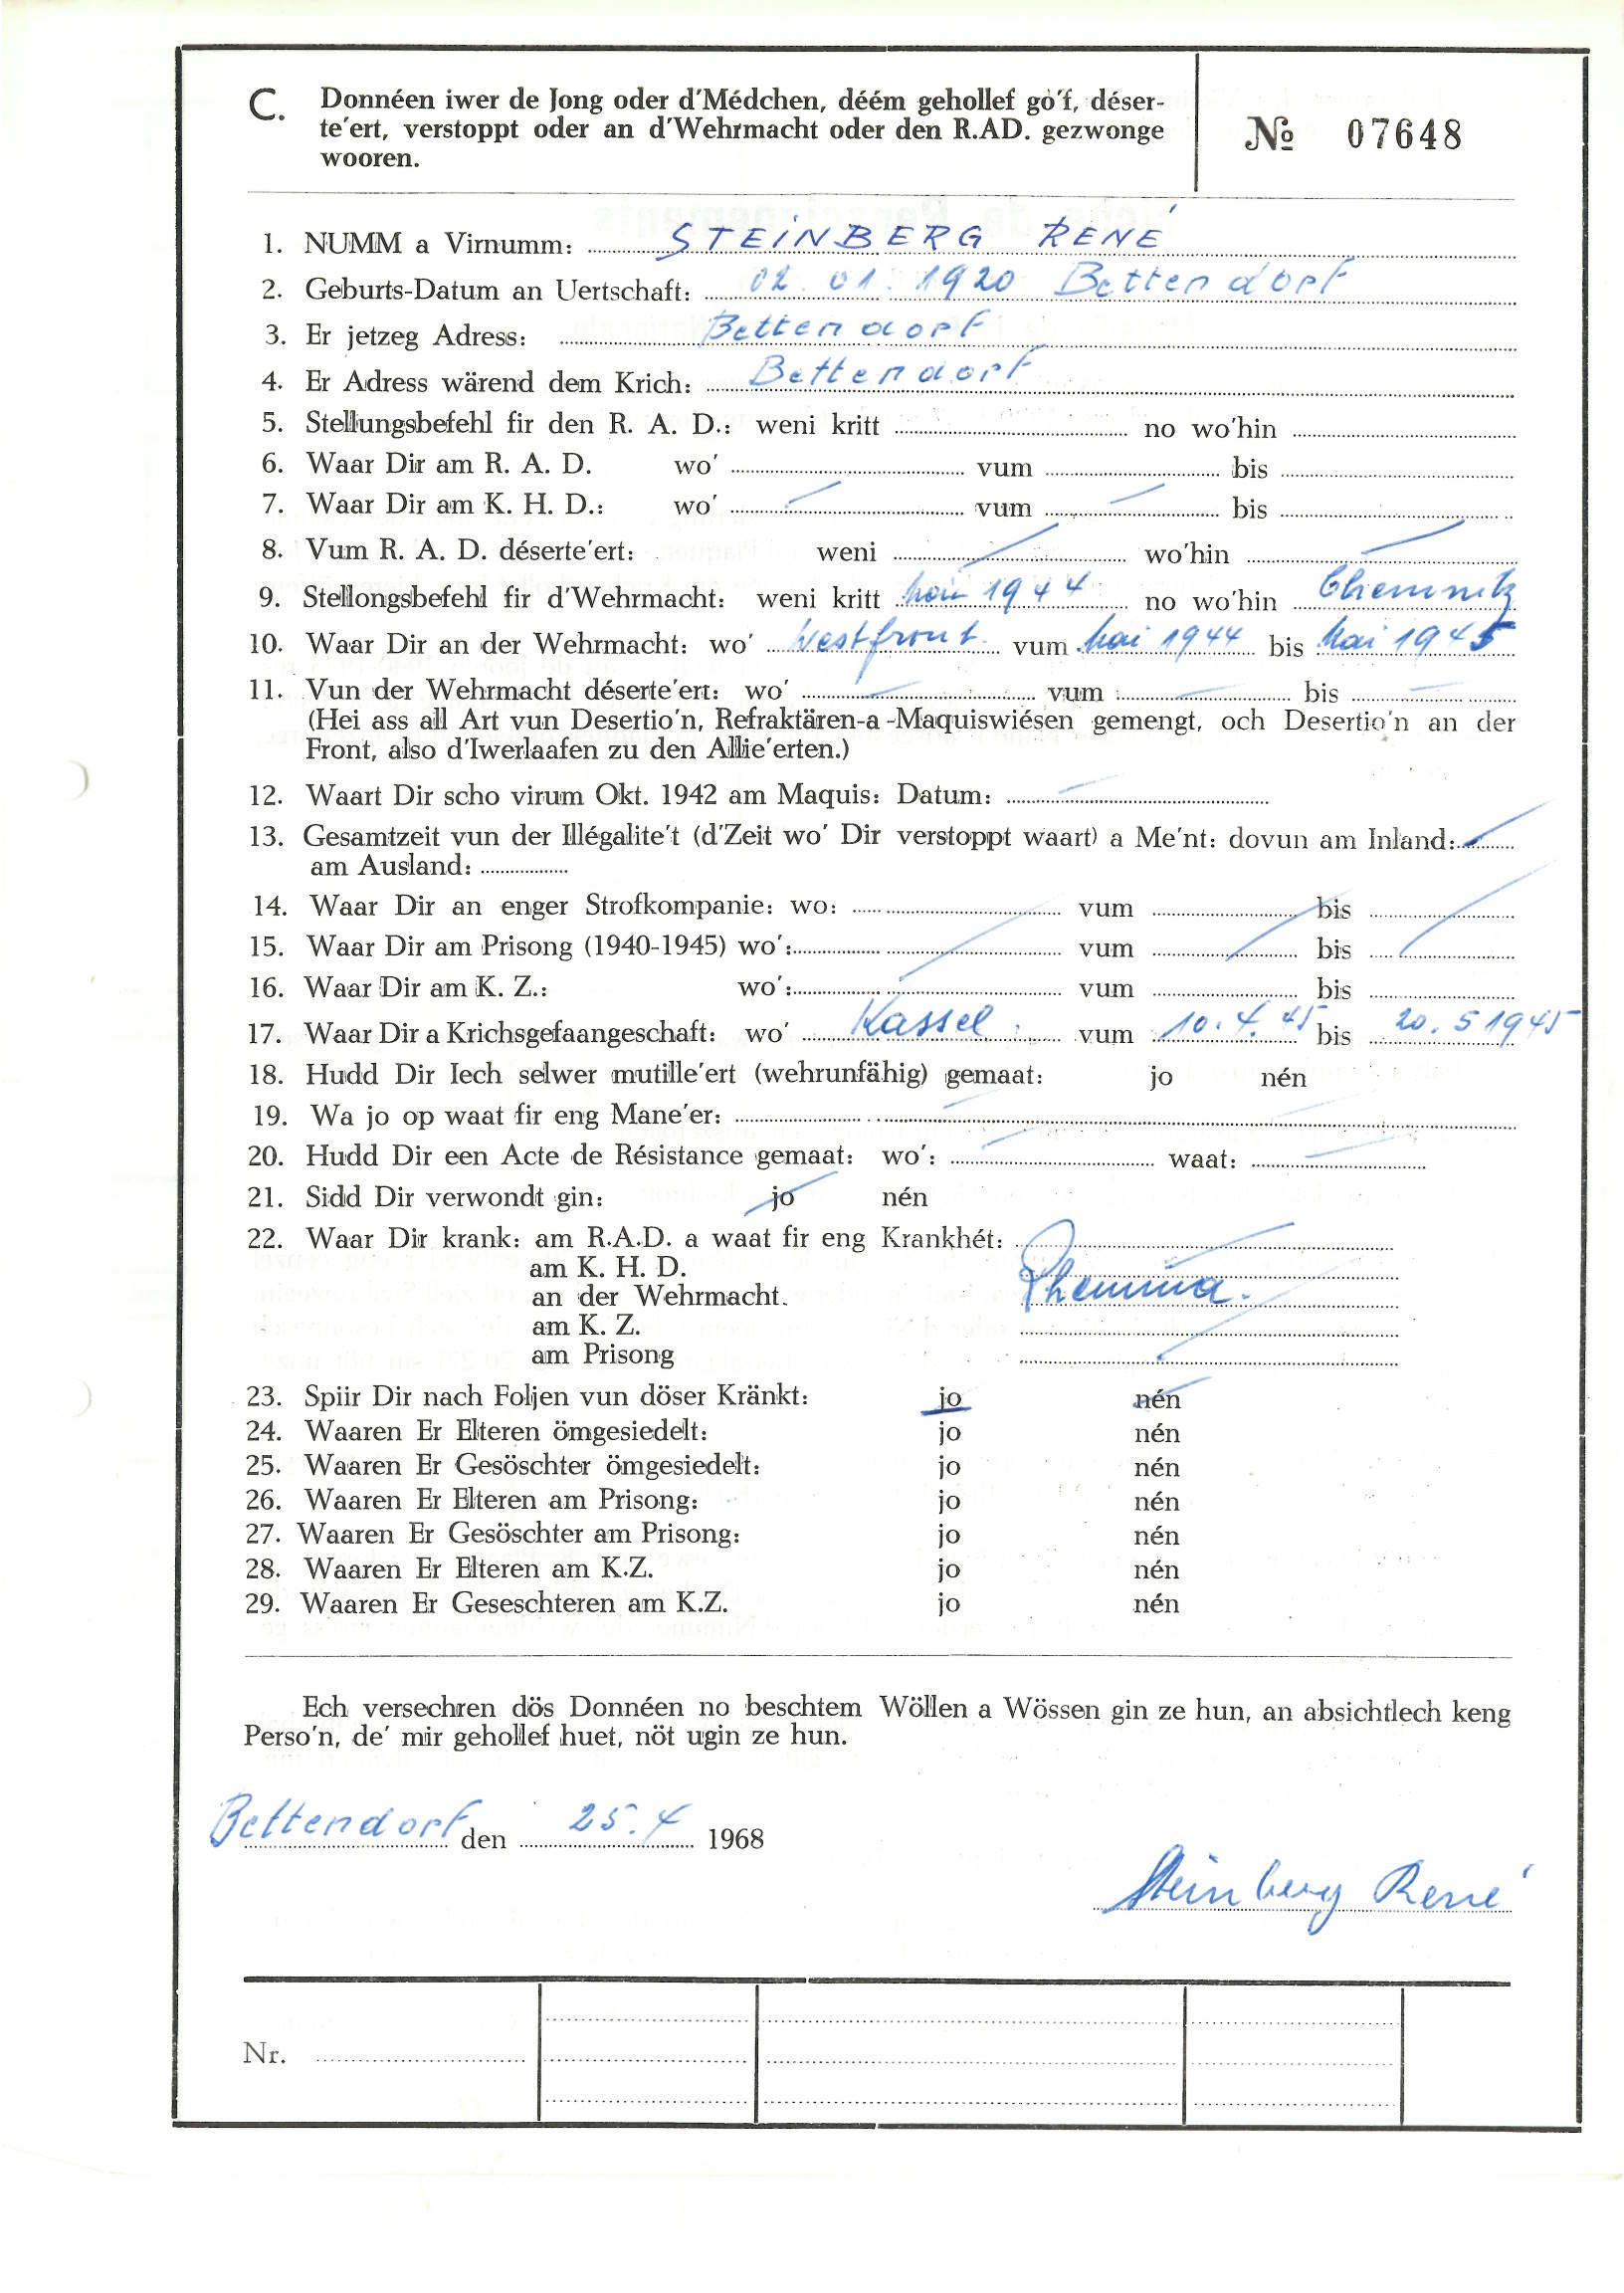 C. Donnéen iwer de Jong oder d'Médchen, déém gehollef go'f, déser-
te'ert, verstoppt oder an d'Wehrmacht oder den R.AD. gezwonge
wooren.
№ 07648
1. NUMM a Virnumm: STEINBERG RENÉ
2. Geburts-Datum an Uertschaft: 02.01.1920 Bettendorf
3. Er jetzeg Adress: Bettendorf
4. Er Adress wärend dem Krich: Bettendorf
5. Stellungsbefehl fir den R. A. D.: weni kritt no wo'hin
6. Waar Dir am R. A. D. wo' vum bis
7. Waar Dir am K. H. D.: wo' vum bis
8. Vum R. A. D. déserte'ert: weni wo'hin
9. Stellongsbefehl fir d'Wehrmacht: weni kritt Mai 1944 no wo'hin Chemnitz
10. Waar Dir an der Wehrmacht: wo' Westfront. vum Mai 1944 bis Mai 1945
11. Vun der Wehrmacht déserte'ert: wo' vum bis
(Hei ass all Art vun Desertio'n, Refraktären-a-Maquiswiésen gemengt, och Desertio'n an der
Front, also d'Iwerlaafen zu den Allie'erten.)
12. Waart Dir scho virum Okt. 1942 am Maquis: Datum:
13. Gesamtzeit vun der Illégalite't (d'Zeit wo' Dir verstoppt waart) a Me'nt: dovun am Inland:
am Ausland:
14. Waar Dir an enger Strofkompanie: wo: vum bis
15. Waar Dir am Prisong (1940-1945) wo': vum bis
16. Waar Dir am K. Z.: wo': vum bis
17. Waar Dir a Krichsgefaangeschaft: wo' Kassel. vum 10.4.45 bis 20.5 1945
18. Hudd Dir Iech selwer mutille'ert (wehrunfähig) gemaat: jo nén
19. Wa jo op waat fir eng Mane'er:
20. Hudd Dir een Acte de Résistance gemaat: wo': waat:
21. Sidd Dir verwondt gin: jo nén
22. Waar Dir krank: am R.A.D. a waat fir eng Krankhét:
am K. H. D.
an der Wehrmacht.
am K. Z.
am Prisong
23. Spiir Dir nach Foljen vun döser Kränkt: jo nén
24. Waaren Er Elteren ömgesiedelt: jo nén
25. Waaren Er Gesöschter ömgesiedelt: jo nén
26. Waaren Er Elteren am Prisong: jo nén
27. Waaren Er Gesöschter am Prisong: jo nén
28. Waaren Er Elteren am K.Z. jo nén
29. Waaren Er Geseschteren am K.Z. jo nén
Ech versechren dös Donnéen no beschtem Wöllen a Wössen gin ze hun, an absichtlech keng
Perso'n, de' mir gehollef huet, nöt ugin ze hun.
Bettendorf den 25.4 1968
Steinberg René
Nr.